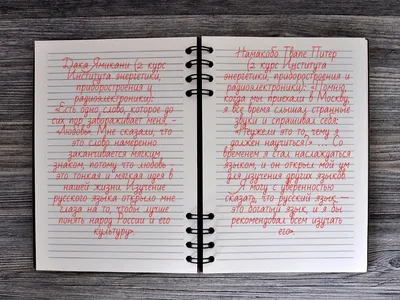 Дака Ямикани (2 курс
Института энергетики,
приборостроения и
радиоэлектроники):
«Есть одно слово, которое до
сих пор завораживает меня, -
«Любовь». Мне сказали, что
это слово намеренно
заканчивается мягким
знаком, потому что любовь -
это тонкая и мягкая идея в
нашей жизни. Изучение
русского языка открыло мне
глаза на то, чтобы лучше
понять народ России и его
культуру».
Намакобо Грапе Питер
(2 курс Института
энергетики, приборостроения и
радиоэлектроники): «Помню,
когда мы приехали в Москву,
я все время слышал странные
звуки и спрашивал себя:
«Неужели это то, чему я
должен научиться!» ... Со
временем я стал наслаждаться
языком, и он открыл мой ум
для изучения других языков.
Я могу с уверенностью
сказать, что русский язык —
это богатый язык, и я бы
рекомендовал всем изучать
его».